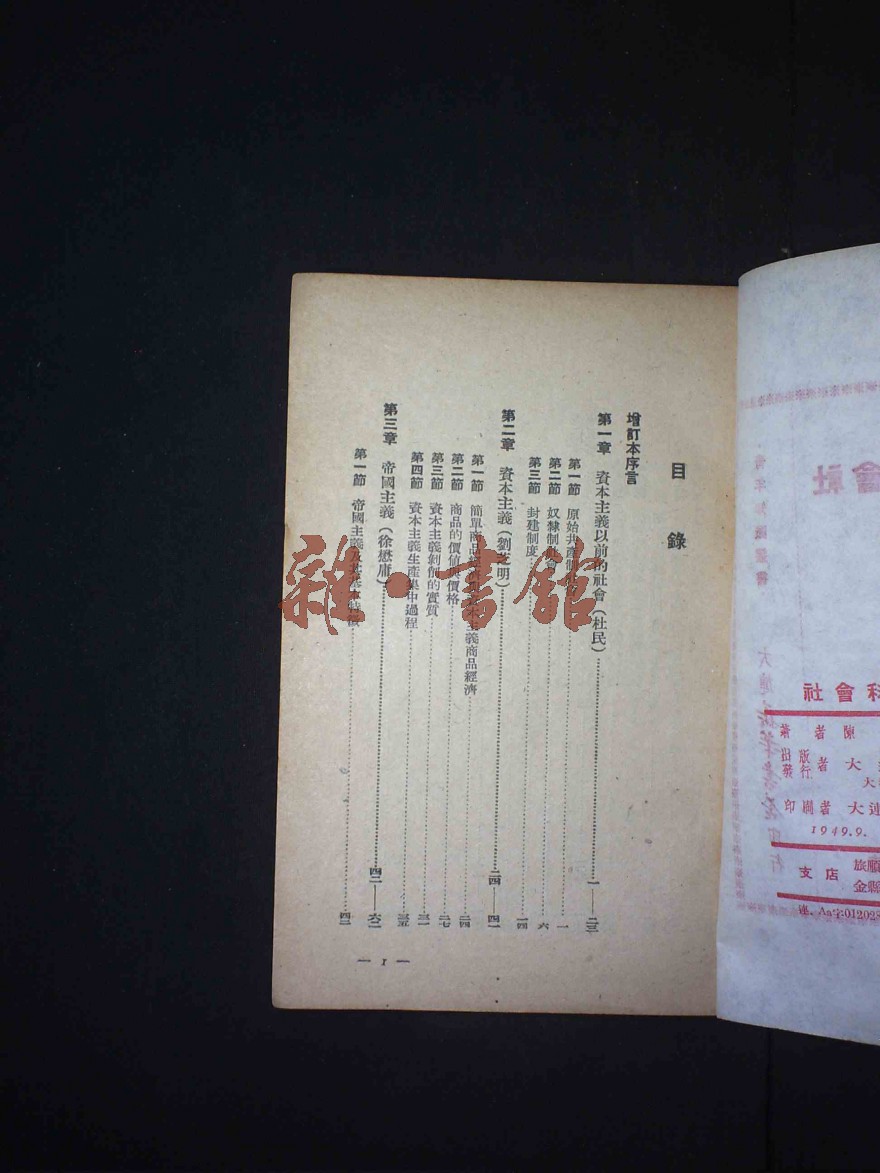 目錄
增訂本序言
第一章 資本主義以前的社會（杜民）…一—二三
第一節 原始共產制社會…一
第二節 奴隸制社會…六
第三節 封建制度…一四
第二章 資本主義（劉芝明）…二四—四一
第一節 簡單商品經濟 資本主義商品經濟…二四
第二節 商品的價值與價格…二七
第三節 資本主義剝削的實質…三一
第四節 資本主義生產集中過程…三五
第三章 帝國主義（徐懋庸）…四二—六二
第一節 帝國主義及其基本特徵…四二
— 1 —
雜·書館
社會科
著者 陳
出版
發行者 大
印刷者 大連
1949.9.
支店 旅順
金縣
連. Aa字:01202